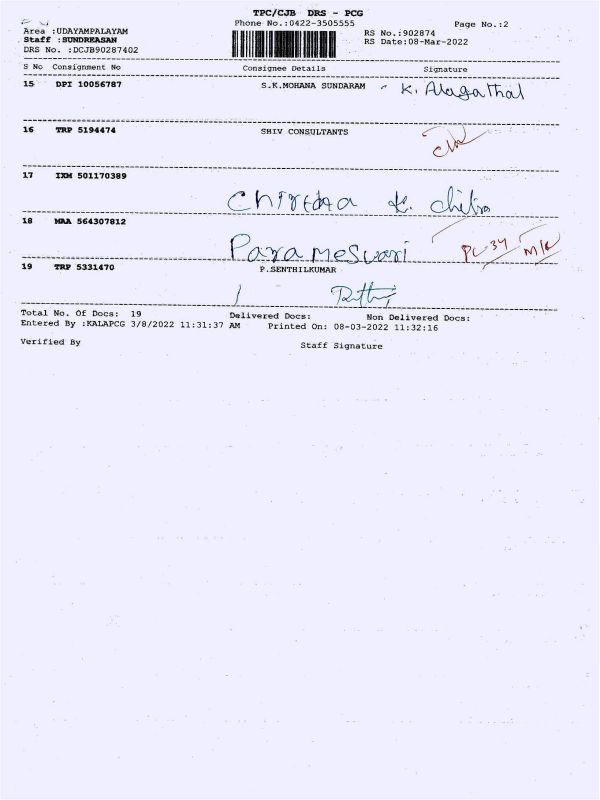 TPC/CJB DRS - PCG
Phone No.:0422-3505555 Page No.:2
Area :UDAYAMPALAYAM RS No.:902874
Staff :SUNDREASAN RS Date:08-Mar-2022
DRS No. :DCJB90287402
S No Consignment No Consignee Details Signature
15 DPI 10056787 S.K.MOHANA SUNDARAM - K. Alagathal
16 TRP 5194474 SHIV CONSULTANTS
17 IXM 501170389
Chitra K. Chitra
18 MAA 564307812
Parameswari PC-34 M/R
19 TRP 5331470 P.SENTHILKUMAR
Total No. Of Docs: 19 Delivered Docs: Non Delivered Docs:
Entered By :KALAPCG 3/8/2022 11:31:37 AM Printed On: 08-03-2022 11:32:16
Verified By Staff Signature